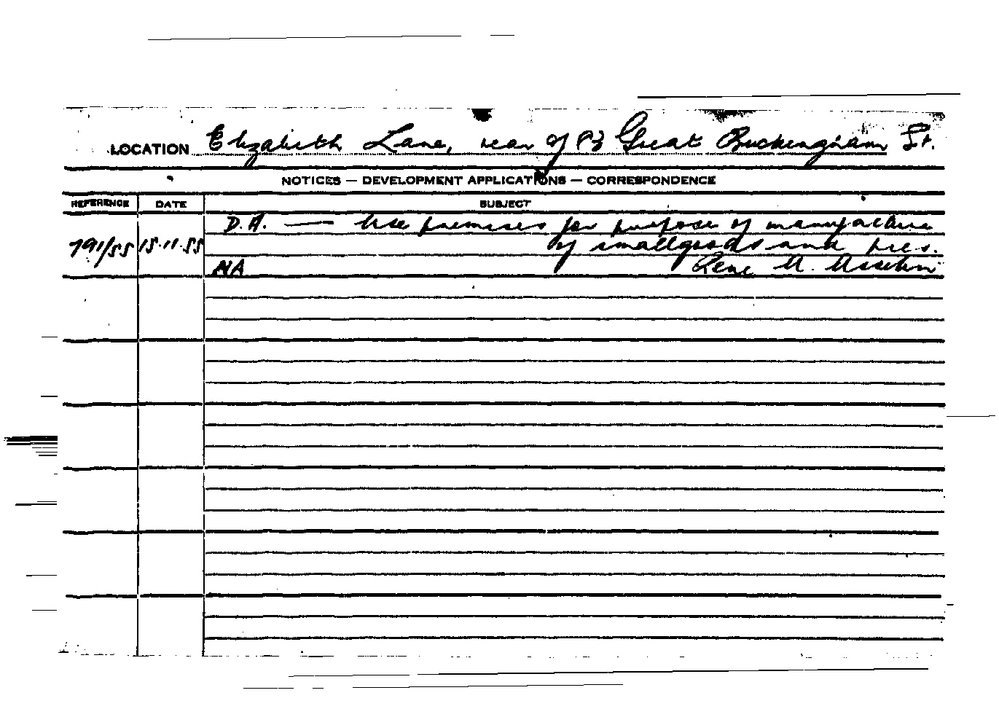 LOCATION Elizabeth Lane, rear of 83 Great Buckingham St.
NOTICES — DEVELOPMENT APPLICATIONS — CORRESPONDENCE
REFERENCE DATE SUBJECT
D.A. — Use premises for purpose of manufacture
791/55 15.11.55 of smallgoods and pies.
NA Rene A.